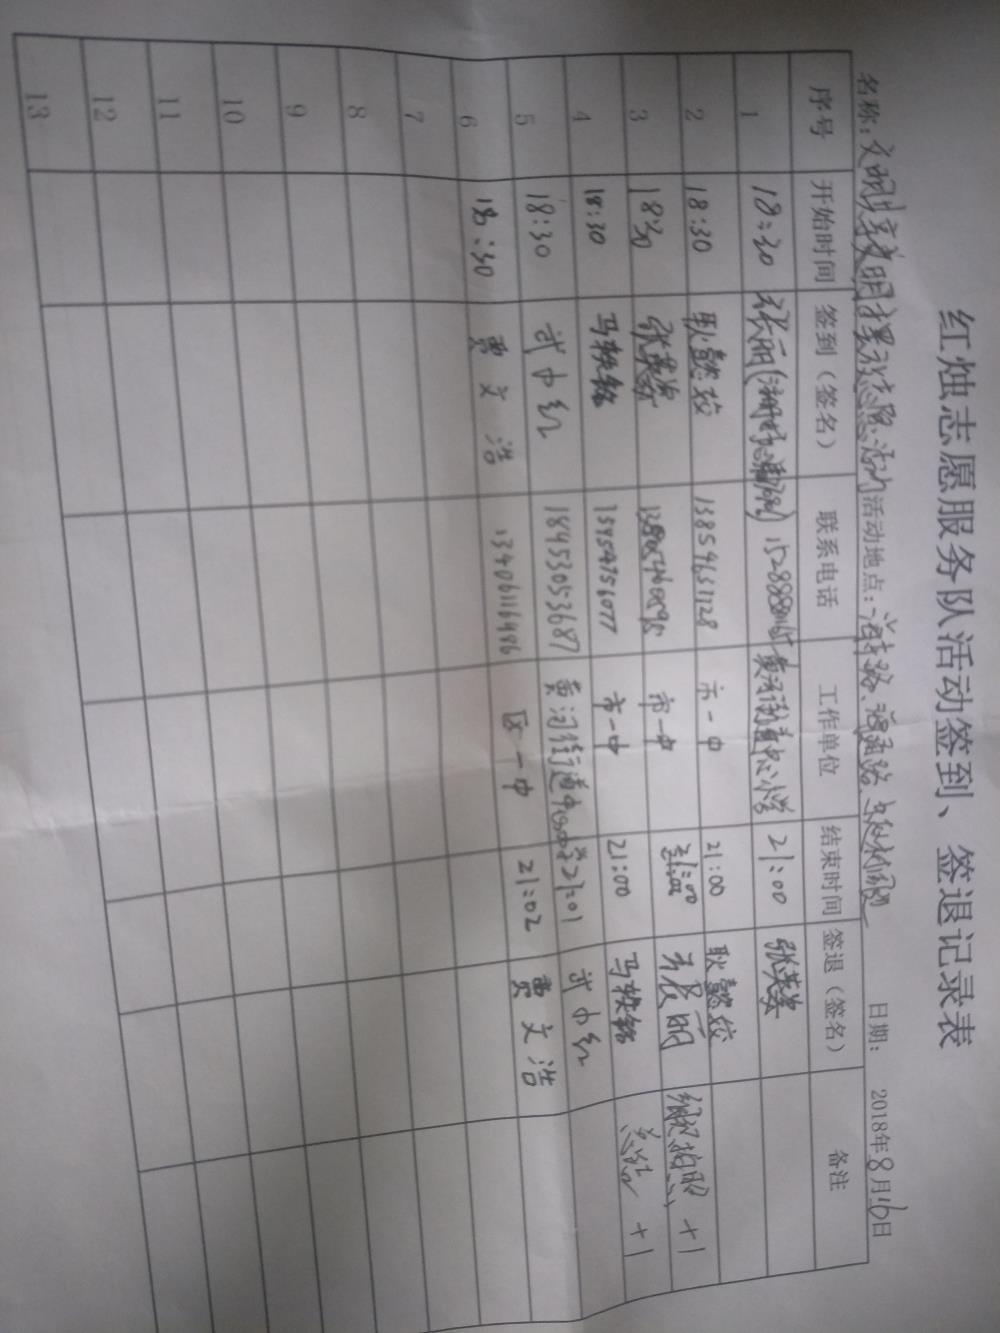 红烛志愿服务队活动签到、签退记录表
名称: 活动地点: 日期: 2018年8月16日
序号 开始时间 签到（签名） 联系电话 工作单位 结束时间 签退（签名） 备注
1 18:30 张丽 21:00 张英姿
2 18:30 耿懿姣 13854651128 市一中 21:00 耿懿姣
3 18:30 张英姿 市一中 21:00 张丽 拍照 +1
4 18:30 马轶铭 15954756077 市一中 21:00 马轶铭 总结 +1
5 18:30 武中红 18453053687 黄河街道中心小学 21:01 武中红
6 18:30 贾文浩 13406116486 区一中 21:02 贾文浩
7
8
9
10
11
12
13